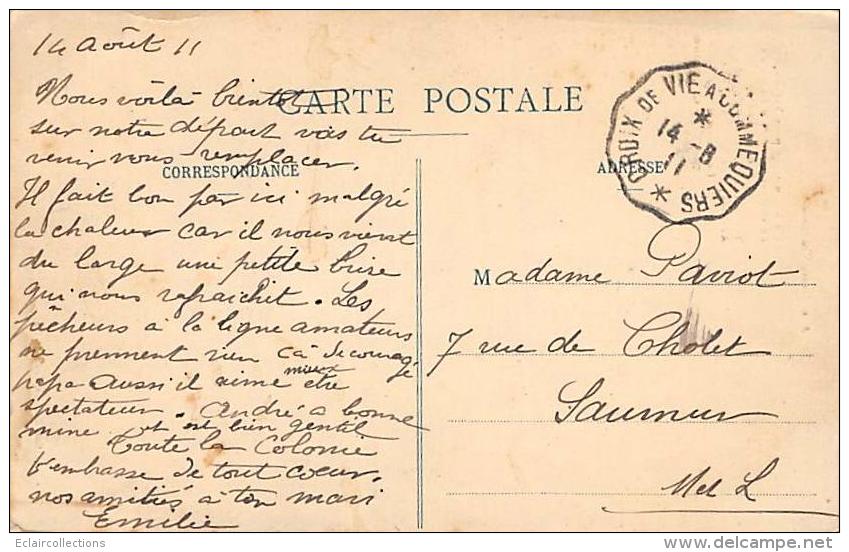 14 Août 11
Nous voilà bientot
CARTE POSTALE
sur notre départ vas tu
venir vous remplacer.
CORRESPONDANCE
ADRESSE
CROIX DE VIE A COMMEQUIERS
14 -8
11
Il fait bon par ici malgré
la chaleur car il nous vient
du large une petite brise
qui nous rafraichit. Les
pêcheurs à la ligne amateurs
ne prennent rien ça décourage
papa Aussi il aime mieux être
spectateur. André a bonne
mine et est bien gentil
Toute la Colonie
t'embrasse de tout coeur.
nos amitiés à ton mari
Emilie
Madame Paviot
7 rue de Cholet
Saumur
M et L
Eclaircollections
www.delcampe.net